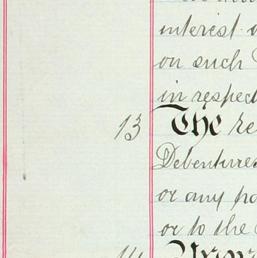 interest
on such
in respect
13 The re
Debentures
or any pa
or to the
14